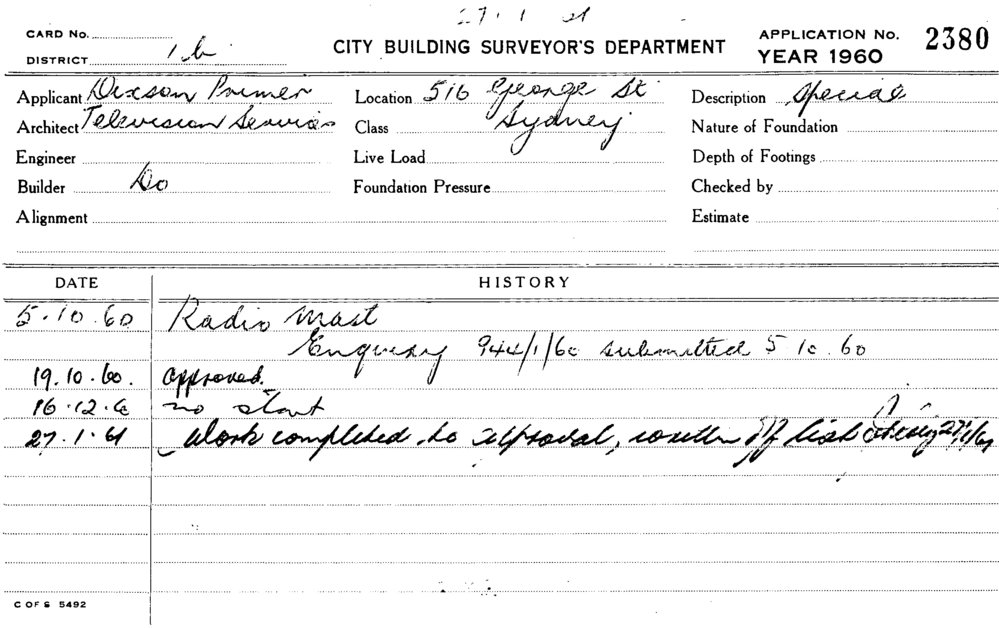 27. 1 61
CARD No.
DISTRICT 1b
CITY BUILDING SURVEYOR'S DEPARTMENT
APPLICATION No. 2380
YEAR 1960
Applicant Dixson Primer
Location 516 George St
Description Special
Architect Television Services
Class Sydney
Nature of Foundation
Engineer
Live Load
Depth of Footings
Builder Do
Foundation Pressure
Checked by
Alignment
Estimate
DATE HISTORY
5.10.60 Radio Mast
Enquiry 944/1/60 submitted 5 10. 60
19.10.60. approved.
16.12.60 no start
27.1.61 Work completed to approval, written off list 27/1/61
C OF S 5492